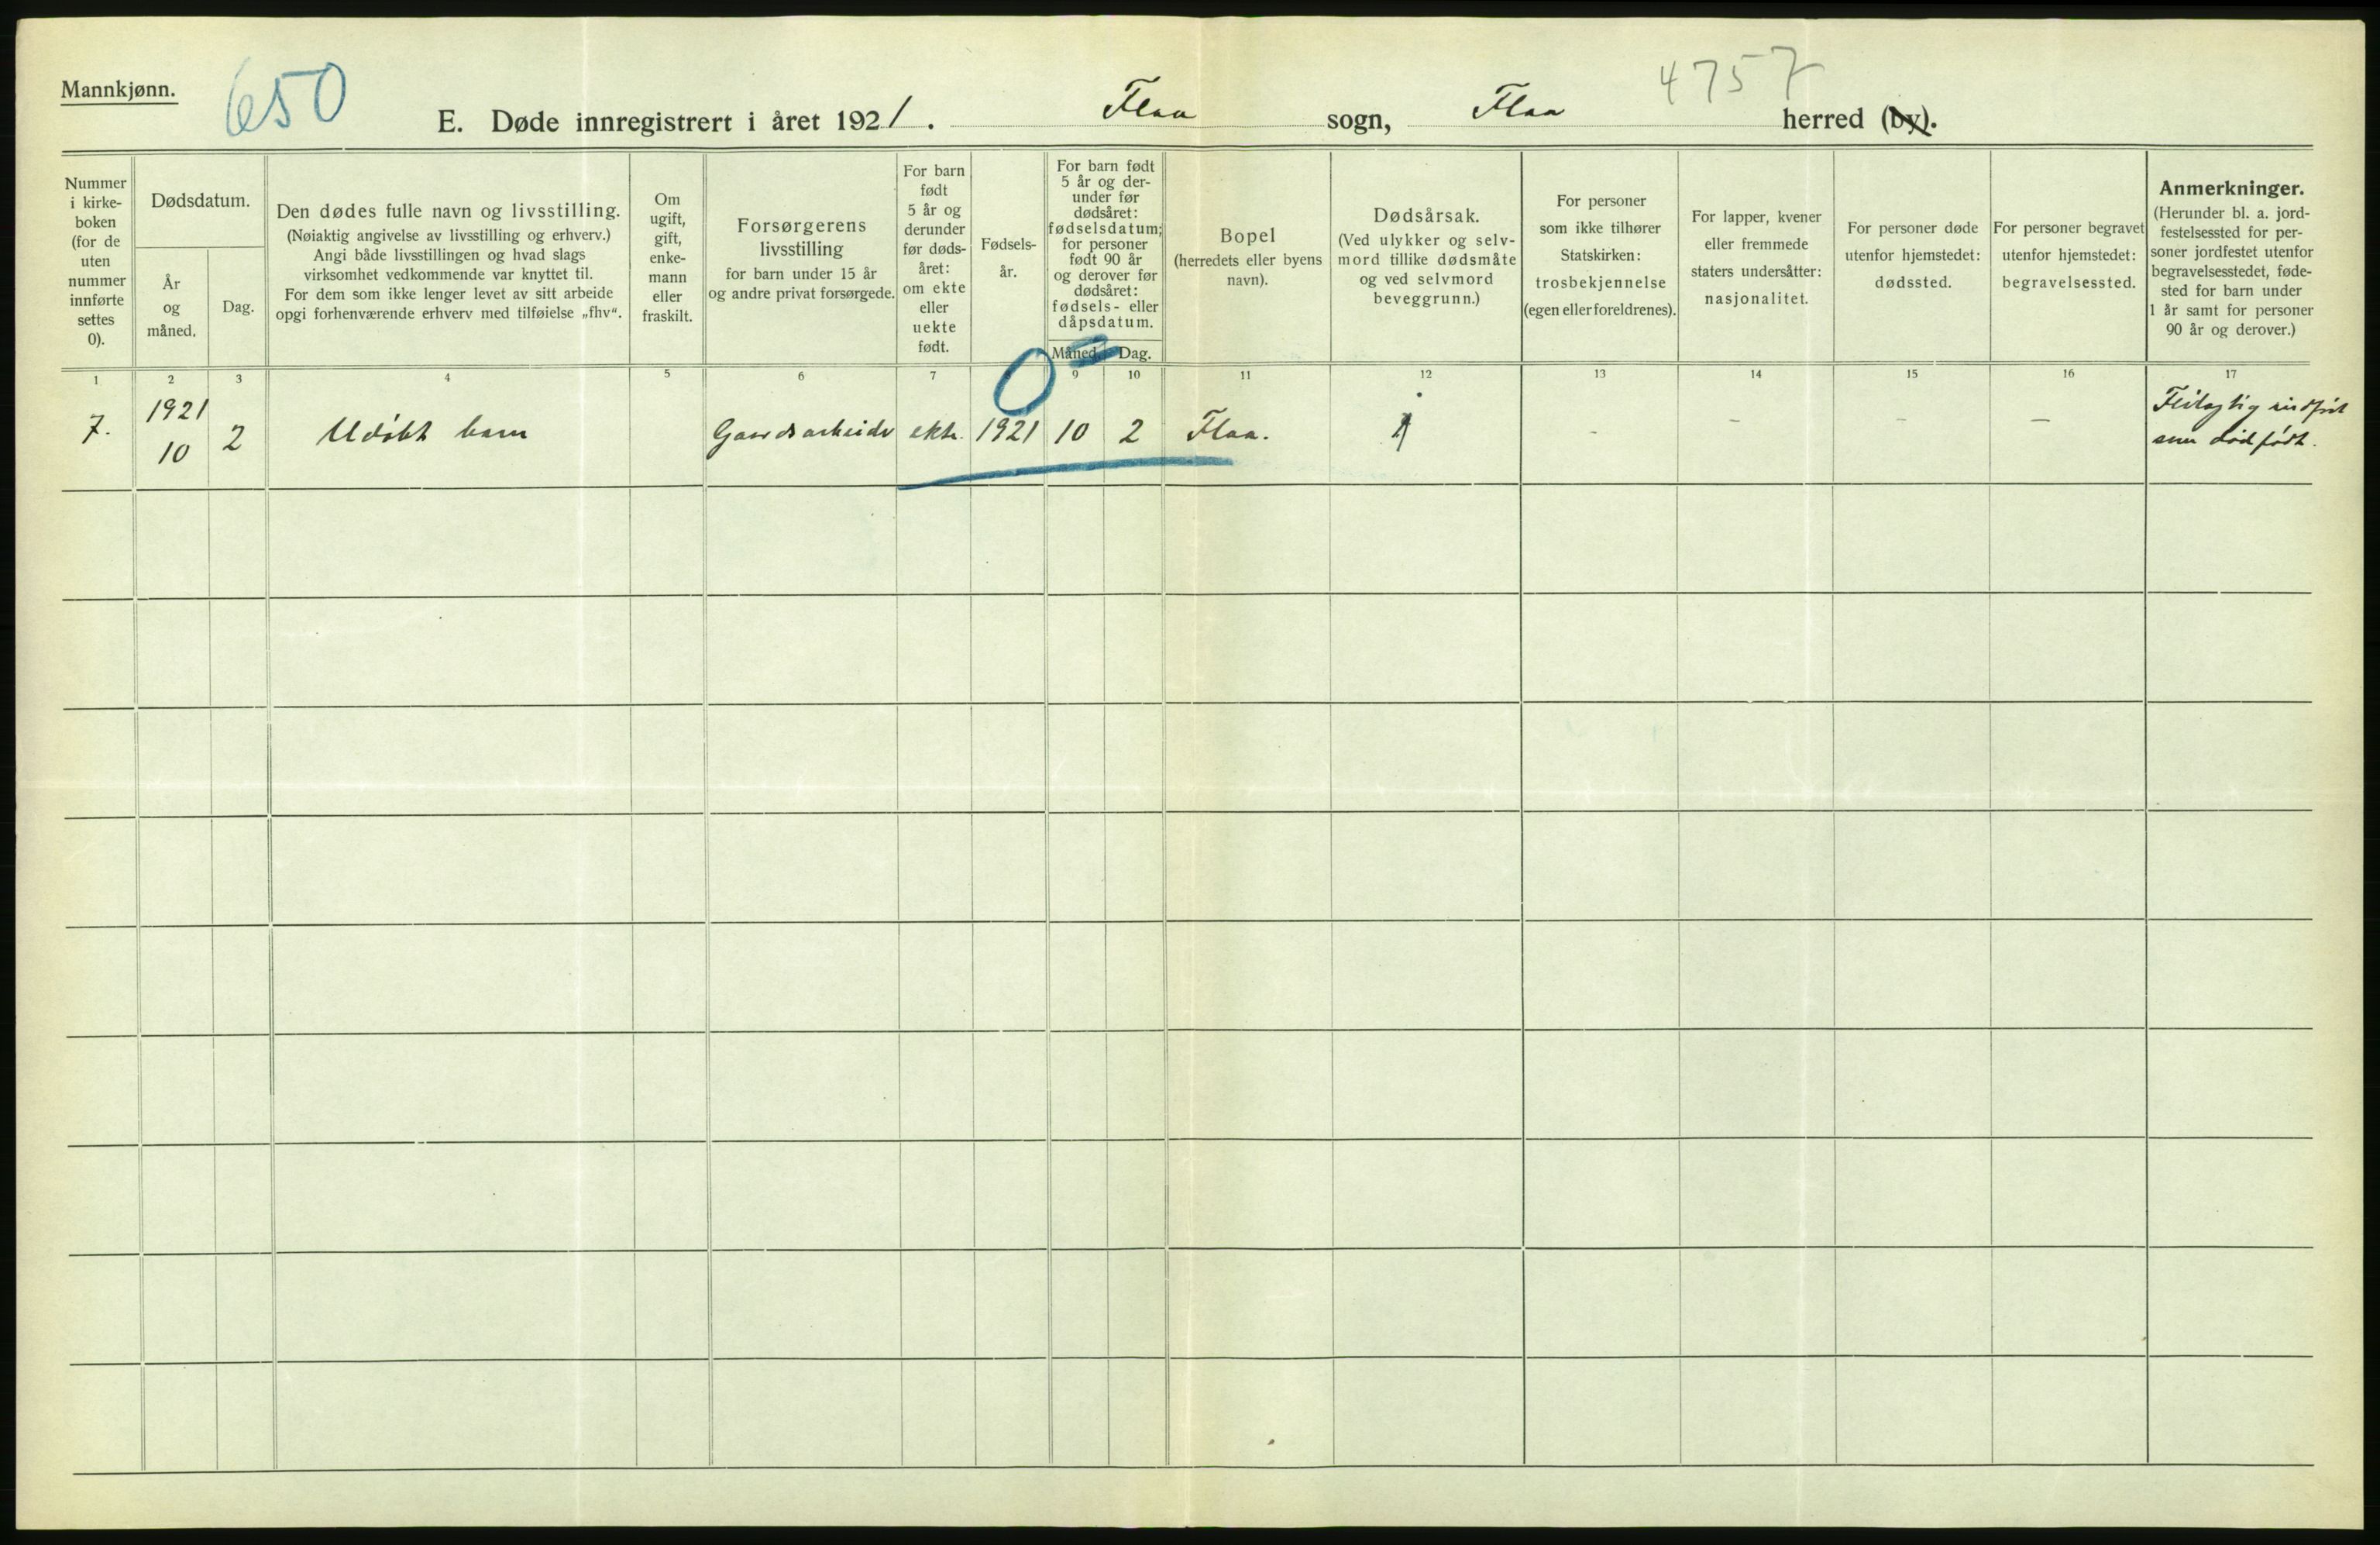 Mannkjønn.
650
4757
E. Døde innregistrert i året 1921. Flaa sogn, Flaa herred (by).
Nummer
i kirke-
boken
(for de
uten
nummer
innførte
settes
0).
Dødsdatum.
År
og
måned.
Dag.
Den dødes fulle navn og livsstilling.
(Nøiaktig angivelse av livsstilling og erhverv.)
Angi både livsstillingen og hvad slags
virksomhet vedkommende var knyttet til.
For dem som ikke lenger levet av sitt arbeide
opgi forhenværende erhverv med tilføielse „fhv“.
Om
ugift,
gift,
enke-
mann
eller
fraskilt.
Forsørgerens
livsstilling
for barn under 15 år
og andre privat forsørgede.
For barn
født
5 år og
derunder
før døds-
året:
om ekte
eller
uekte
født.
Fødsels-
år.
For barn født
5 år og der-
under før
dødsåret:
fødselsdatum;
for personer
født 90 år
og derover før
dødsåret:
fødsels- eller
dåpsdatum.
Måned. Dag.
Bopel
(herredets eller byens
navn).
Dødsårsak.
(Ved ulykker og selv-
mord tillike dødsmåte
og ved selvmord
beveggrunn.)
For personer
som ikke tilhører
Statskirken:
trosbekjennelse
(egen eller foreldrenes).
For lapper, kvener
eller fremmede
staters undersåtter:
nasjonalitet.
For personer døde
utenfor hjemstedet:
dødssted.
For personer begravet
utenfor hjemstedet:
begravelsessted.
Anmerkninger.
(Herunder bl. a. jord-
festelsessted for per-
soner jordfestet utenfor
begravelsesstedet, føde-
sted for barn under
1 år samt for personer
90 år og derover.)
1 2 3 4 5 6 7 9 10 11 12 13 14 15 16 17
0
7. 1921 10 2 Udøbt barn Gaardsarbeider ekte. 1921 10 2 Flaa. - - - -
Feilagtig indført
som dødfødt.